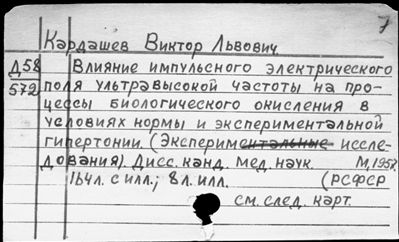 7
Кардашев Виктор Львович
Д58 Влияние импульсного электрического
572 поля ультравысокой частоты на про-
цессы биологического окисления в
условиях нормы и экспериментальной
гипертонии. (Экспериментальные иссле-
дования). Дисс. канд. мед. наук. М, 1957.
164л. с илл.; 8л. илл. (РСФСР
см. след. карт.